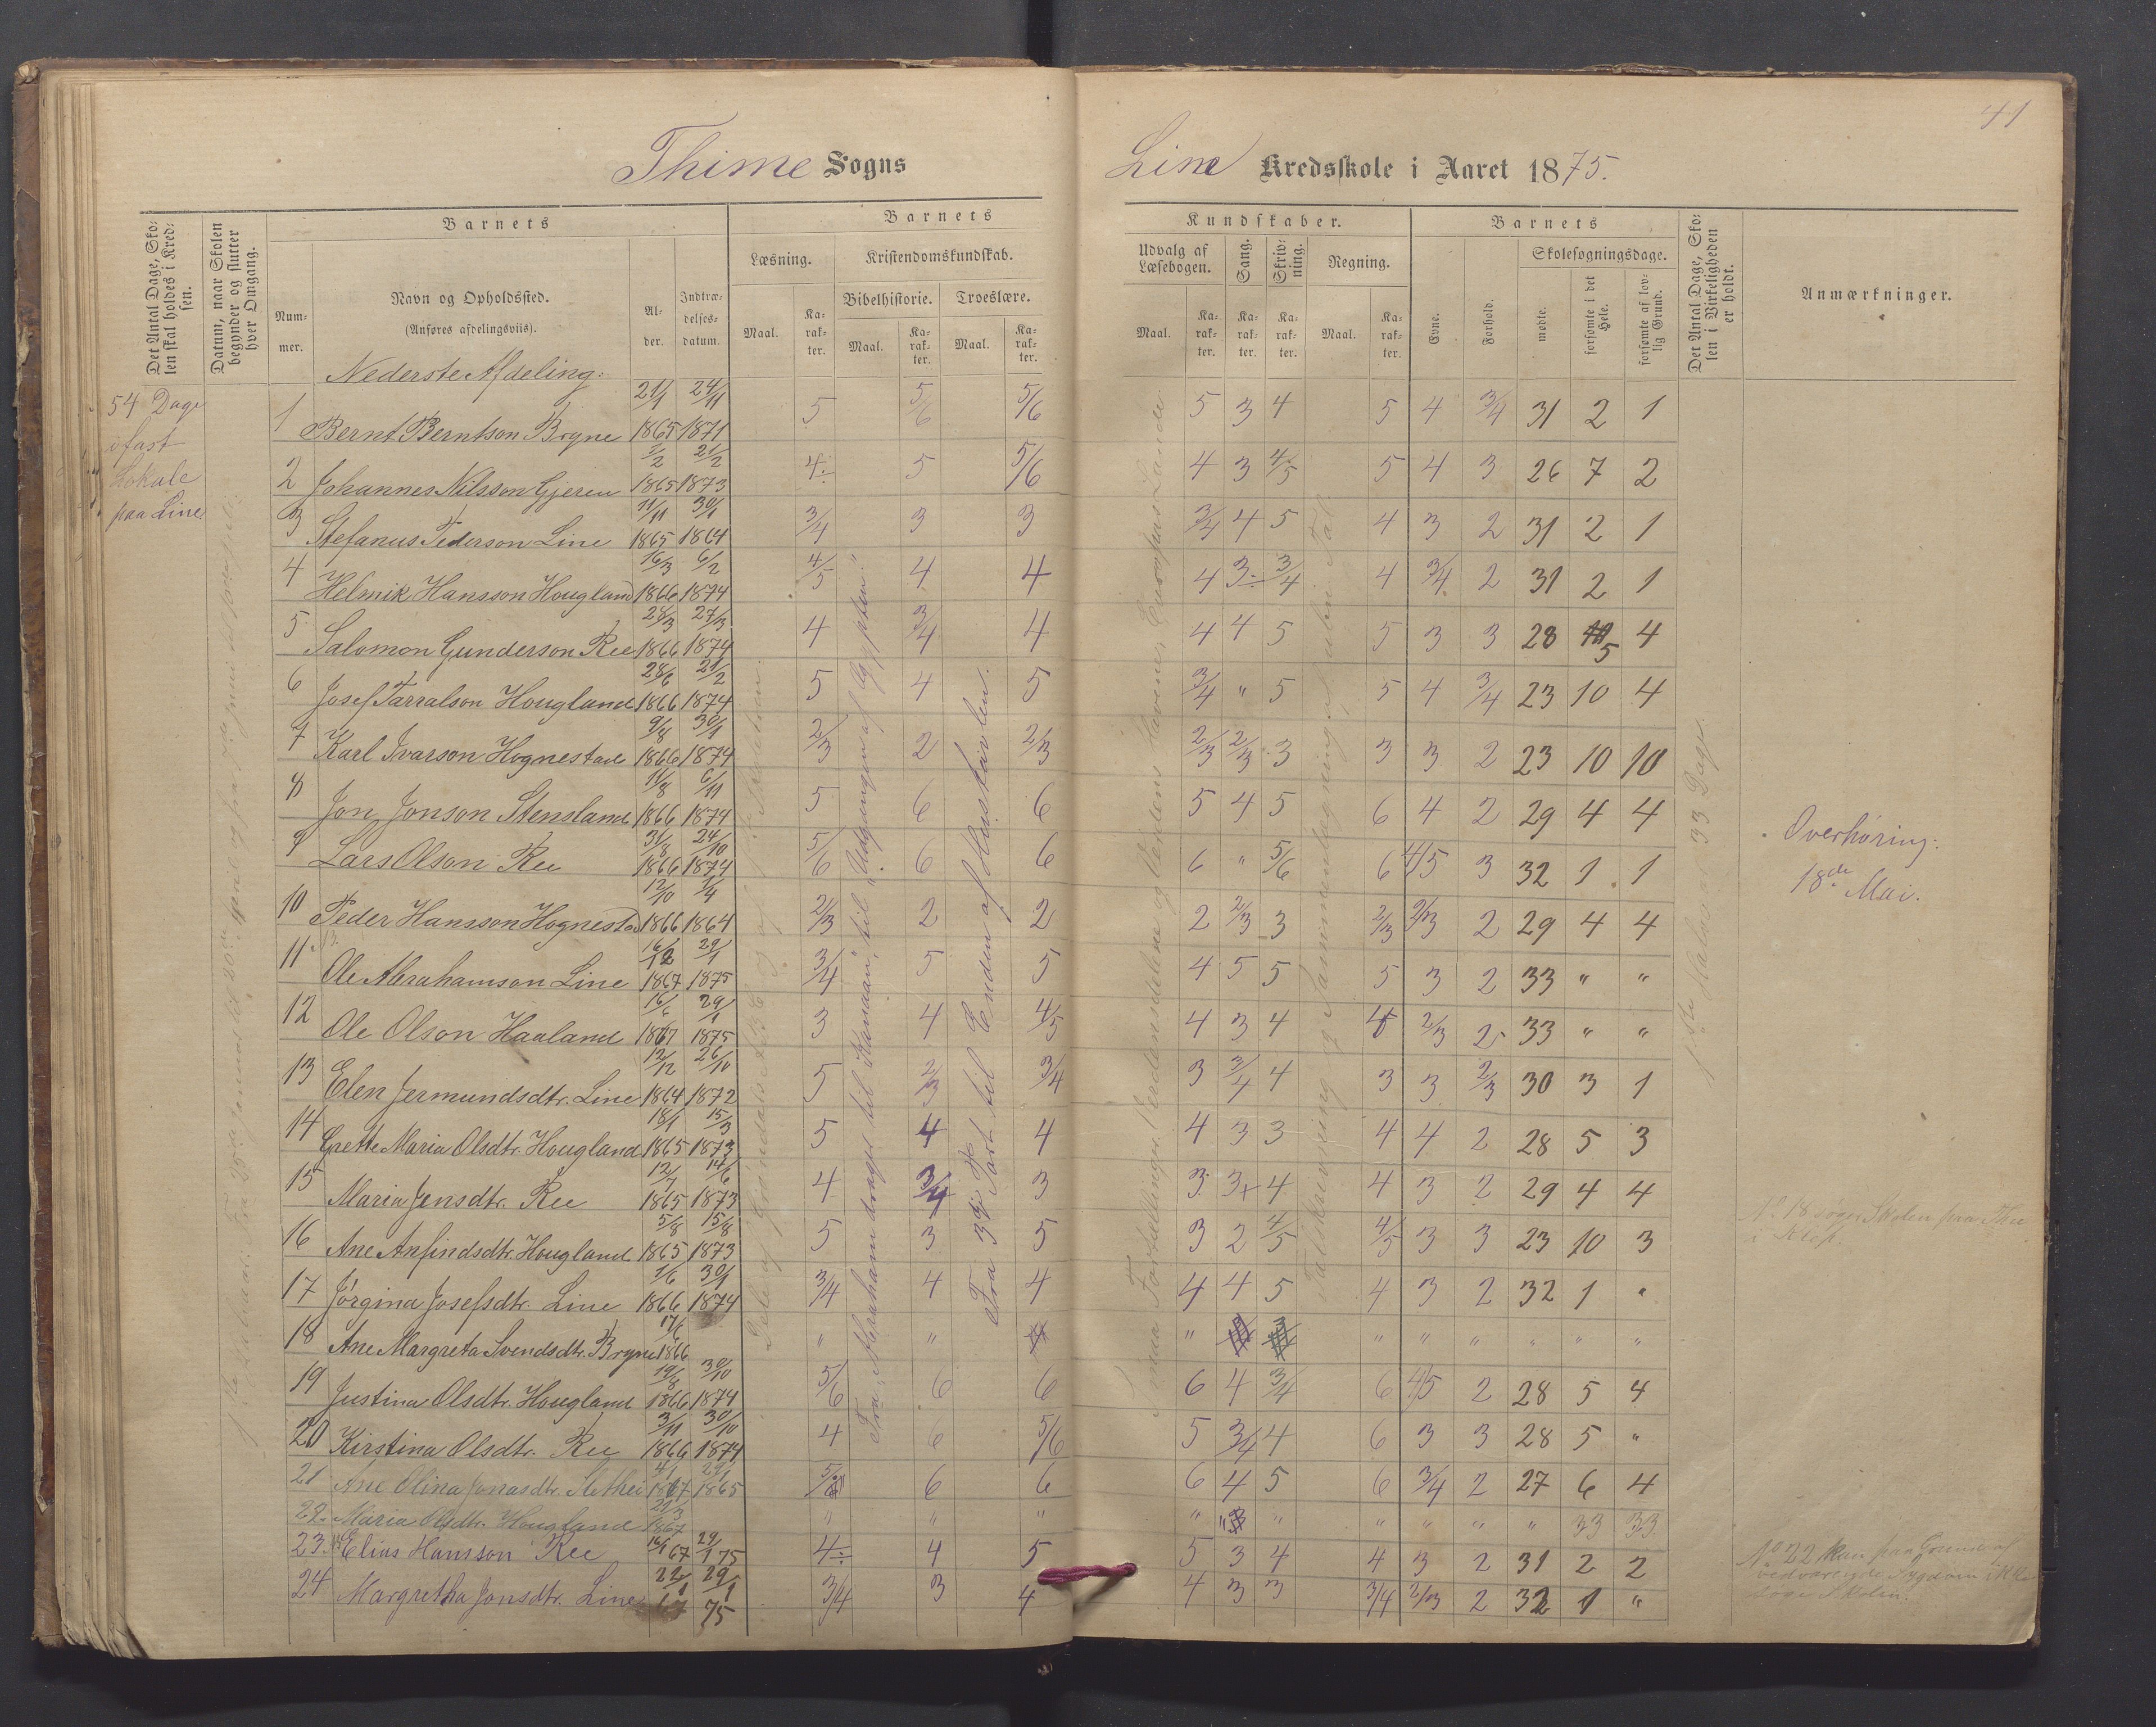 41
Thime Sogns
Line Kredsskole i Aaret 1875.
Det Antal Dage, Sko-
len skal holdes i Kred-
sen.
Datum, naar Skolen
begynder og slutter
hver Omgang.
Barnets
Num-
mer.
Navn og Opholdssted.
(Anføres afdelingsviis).
Al-
der.
Indtræ-
delses-
datum.
Barnets
Læsning.
Kristendomskundskab.
Bibelhistorie.
Troeslære.
Maal.
Ka-
rak-
ter.
Maal.
Ka-
rak-
ter.
Maal.
Ka-
rak-
ter.
Kundskaber.
Udvalg af
Læsebogen.
Sang.
Skriv-
ning.
Regning.
Maal.
Ka-
rak-
ter.
Ka-
rak-
ter.
Ka-
rak-
ter.
Maal.
Ka-
rak-
ter.
Barnets
Evne.
Forhold.
Skolesøgningsdage.
mødte.
forsømte i det
Hele.
forsømte af lov-
lig Grund.
Det Antal Dage, Sko-
len i Virkeligheden
er holdt.
Anmærkninger.
Nederste Afdeling:
54 Dage
i fast
Lokale
paa Line.
1 Bernt Berntson Bryne 21/1 1865 24/11 1871 5 5/6 5/6 5 3 4 5 4 3/4 31 2 1
2 Johannes Nilsson Gjeren 2/2 1865 21/2 1873 4÷ 5 5/6 4 3 4/5 5 4 3 26 7 2
3 Stefanus Pederson Line 11/11 1865 30/1 1864 3/4 3 3 3/4 4 5 4 3 2 31 2 1
4 Helmik Hansson Hougland 16/3 1866 6/2 1874 4/5 4 4 4 3÷ 3/4 4 3/4 2 31 2 1
5 Salomon Gunderson Ree 28/3 1866 27/3 1874 4 3/4 4 4 4 5 5 3 3 28 5 4
6 Josef Tarralson Hougland 28/6 1866 21/2 1874 5 4 5 3/4 " 5 5 4 3/4 23 10 4
7 Karl Ivarson Hognestad 9/8 1866 30/1 1874 2/3 2 2/3 2/3 2/3 3 3 3 2 23 10 10
8 Jon Jonson Stensland 11/8 1866 6/11 1874 5 6 6 5 4 5 6 4 2 29 4 4
9 Lars Olson Ree 31/8 1866 24/10 1874 5/6 6 6 6 " 5/6 6 4/5 3 32 1 1
10 Peder Hansson Hognestad 12/10 1866 1/4 1864 2/3 2 2 2 2/3 3 2/3 2/3 2 29 4 4
11 Ole Abrahamson Line 16/12 1867 29/1 1875 3/4 5 5 4 5 5 5 3 2 33 " "
12 Ole Olson Haaland 16/6 1867 29/1 1875 3 4 4/5 4 3 4 4 2/3 2 33 " "
13 Elen Jermundsdtr. Line 12/12 1864 26/10 1872 5 2/3 3/4 3 3/4 4 3 3 2/3 30 3 1
14 Grette Maria Olsdtr. Hougland 18/1 1865 15/3 1873 5 4 4 4 3 3 4 4 2 28 5 3
15 Maria Jensdtr. Ree 12/7 1865 14/6 1873 4 3/4 3 3 3+ 4 4 3 2 29 4 4
16 Ane Anfindsdtr. Hougland 5/8 1865 15/8 1873 5 3 5 3 2 4/5 4/5 3 3 23 10 3
17 Jørgina Josefsdtr. Line 1/6 1866 30/1 1874 3/4 4 4 4 4 5 4 3 2 32 1 "
18 Ane Margreta Svendsdtr. Bryne 17/6 1866 " " " " " " " " "
19 Justina Olsdtr. Hougland 19/8 1866 30/10 1874 5/6 6 6 6 4 3/4 6 4/5 2 28 5 4
20 Kirstina Olsdtr. Ree 3/11 1866 30/10 1874 4 6 5/6 5 3/4 4 6 3 3 28 5 "
21 Ane Olina Jonasdtr. 4/1 1867 29/1 1865 5/6 6 6 6 4 5 6 3/4 2 27 6 4
22. Maria Olsdtr. Hougland 21/3 1867 " " " " " " " " " 33 33
23. Elias Hansson Ree 16/1 67 29/1 75 4÷ 4 5 5 3 4 4 3 2 31 2 2
24 Margretha Jonsdtr. Line 22/1 29/1 75 3/4 3 4 4 3 3 3/4 2/3 2 32 1 "
Fra "Abraham drager til Kanaan," til "Udgangen af Ægypten".
Fra 3die Part til Enden af Hustavlen.
33 Dage.
Overhøring:
18de Mai.
No. 18 søger Skolen paa
i Klep.
No 22 kan paa Grund af
vedvarende Sygdom ikke
søge Skolen.